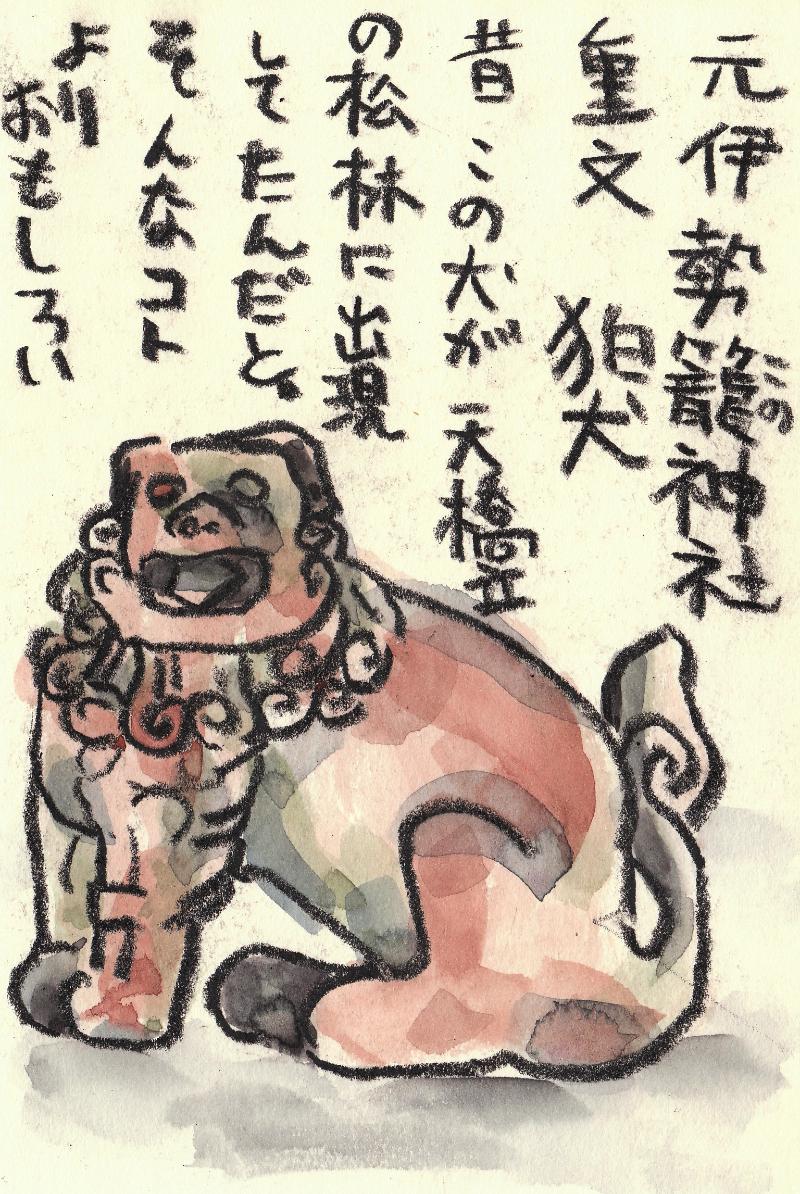 元伊勢籠神社
この
重文 狛犬
昔 この犬が 天橋立
の松林に出現
してたんだと。
そんなコト
より
おもしろい